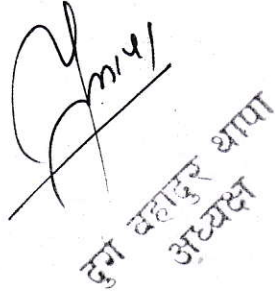 दुग बहादुर थापा
अध्यक्ष